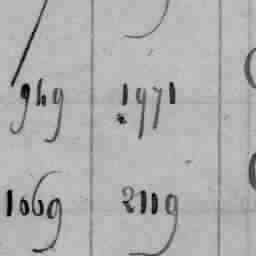 949 1971
1069 2119